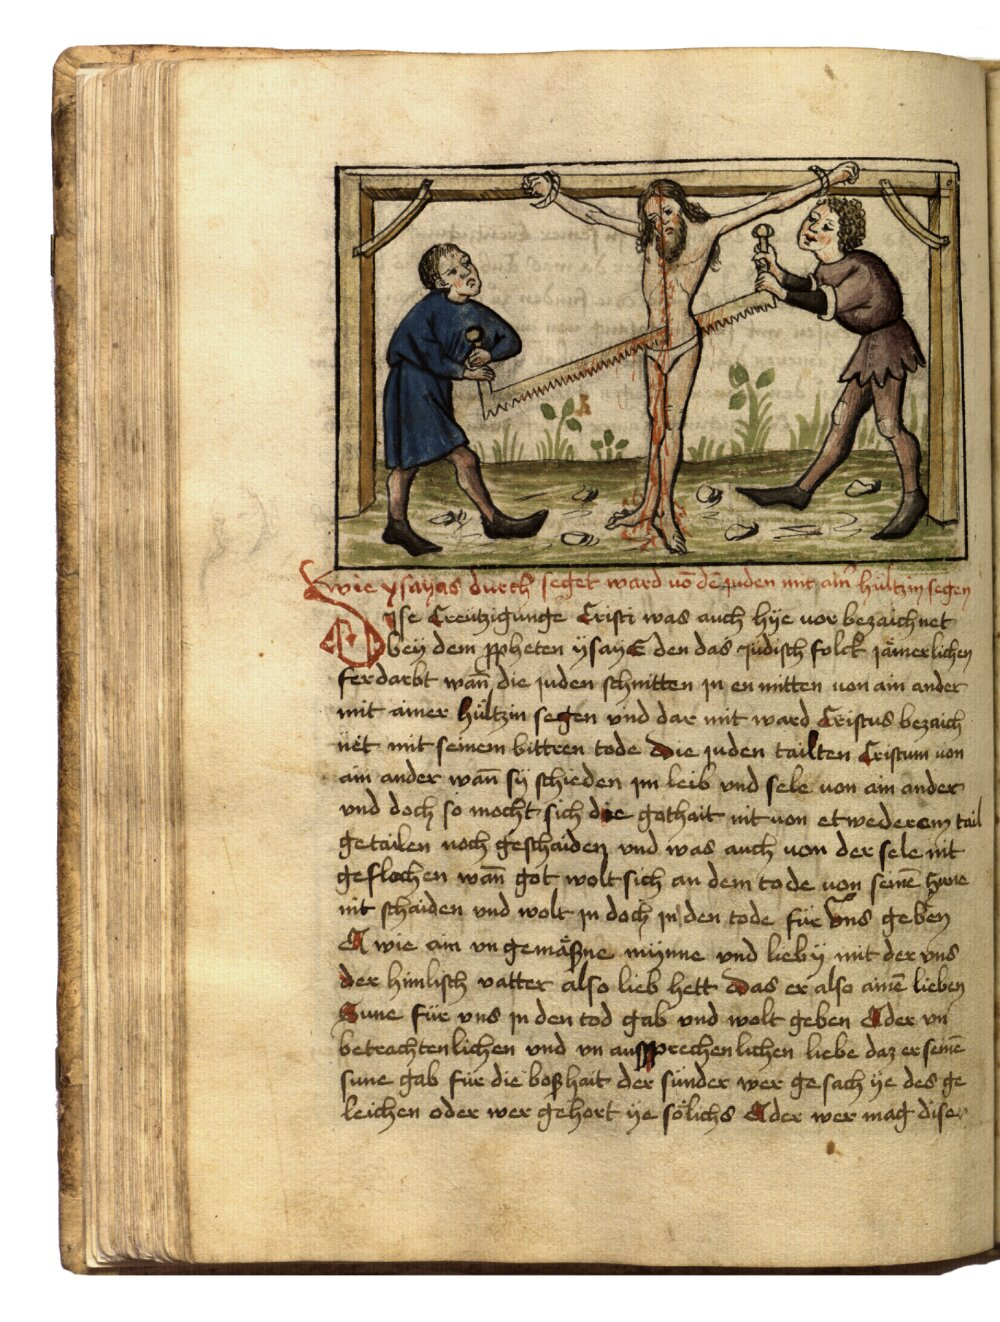 wie ysayas durch seget ward vō dē juden mit ainr̄ hültzin segen
Dise Creutzigunge Cristi was auch hye vor bezaichnet
bey dem ppheten ysaye den das jüdisch folck jämerlichen
ferdarbt wañ die juden schnitten jn en mitten von ain ander
mit ainer hültzin segen vnd dar mit ward Cristus bezaich
net mit seinem bittren tode Die juden tailten Cristum von
ain ander wañ sy schieden jm leib vnd sele von ain ander
vnd doch so mocht sich die gothait nit von etwederem tail
getailen noch geschaiden vnd was auch von der sele nit
geflochen wañ got wolt sich an dem tode von seinē sune
nit schaiden vnd wolt jn doch jn den tode für vns geben
O wie ain vngemäßne mynne vnd lieby mit der vns
der himlisch vatter also lieb hett Das er also ainē lieben
Sune für vns jn den tod gab vnd wolt geben O der vn
betrachtenlichen vnd vn aussprechenlichen liebe daz er seinē
sune gab für die boßhait der sünder wer gesach ye des ge
leichen oder wer gehort ye sölichs Oder wer mag diser